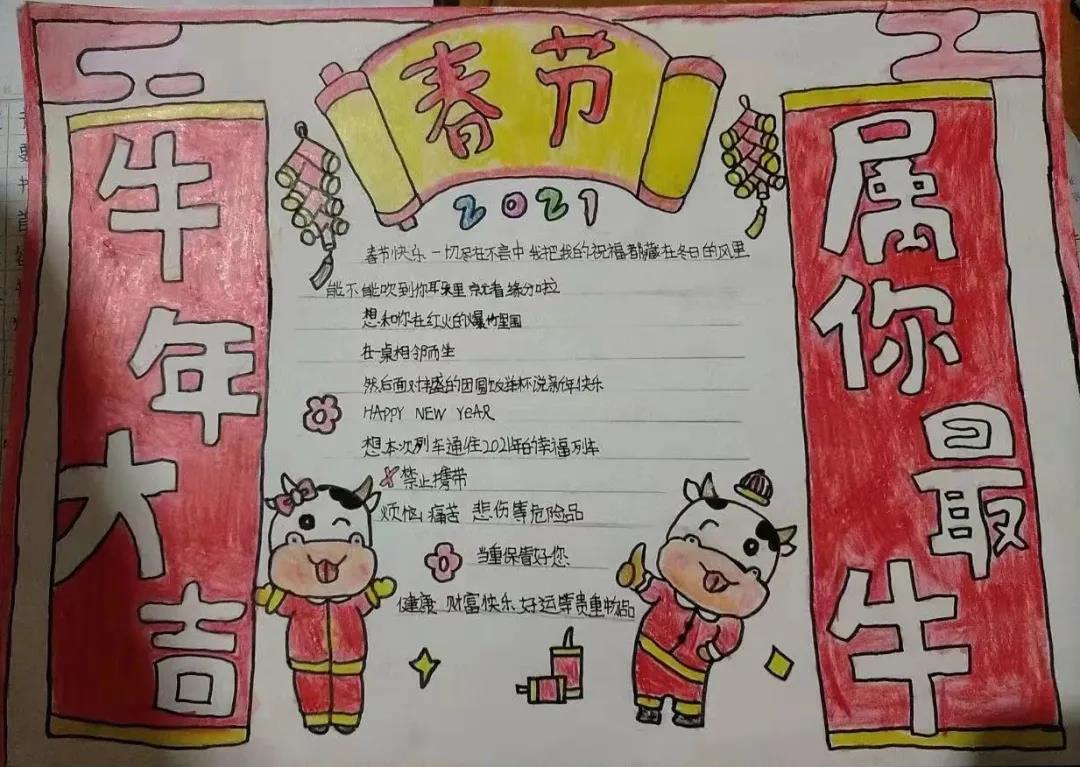 春节
2021
牛年大吉
属你最牛
春节快乐 一切尽在不言中 我把我的祝福都藏在冬日的风里
能不能吹到你耳朵里就看缘分啦
想和你在红火的爆竹里围
在一桌相邻而坐
然后面对丰盛的团圆饭举杯说新年快乐
HAPPY NEW YEAR
想本次列车通往2021年的幸福列车
✗禁止携带
烦恼 痛苦 悲伤等危险品
当重保管好您
健康 财富快乐 好运等贵重物品